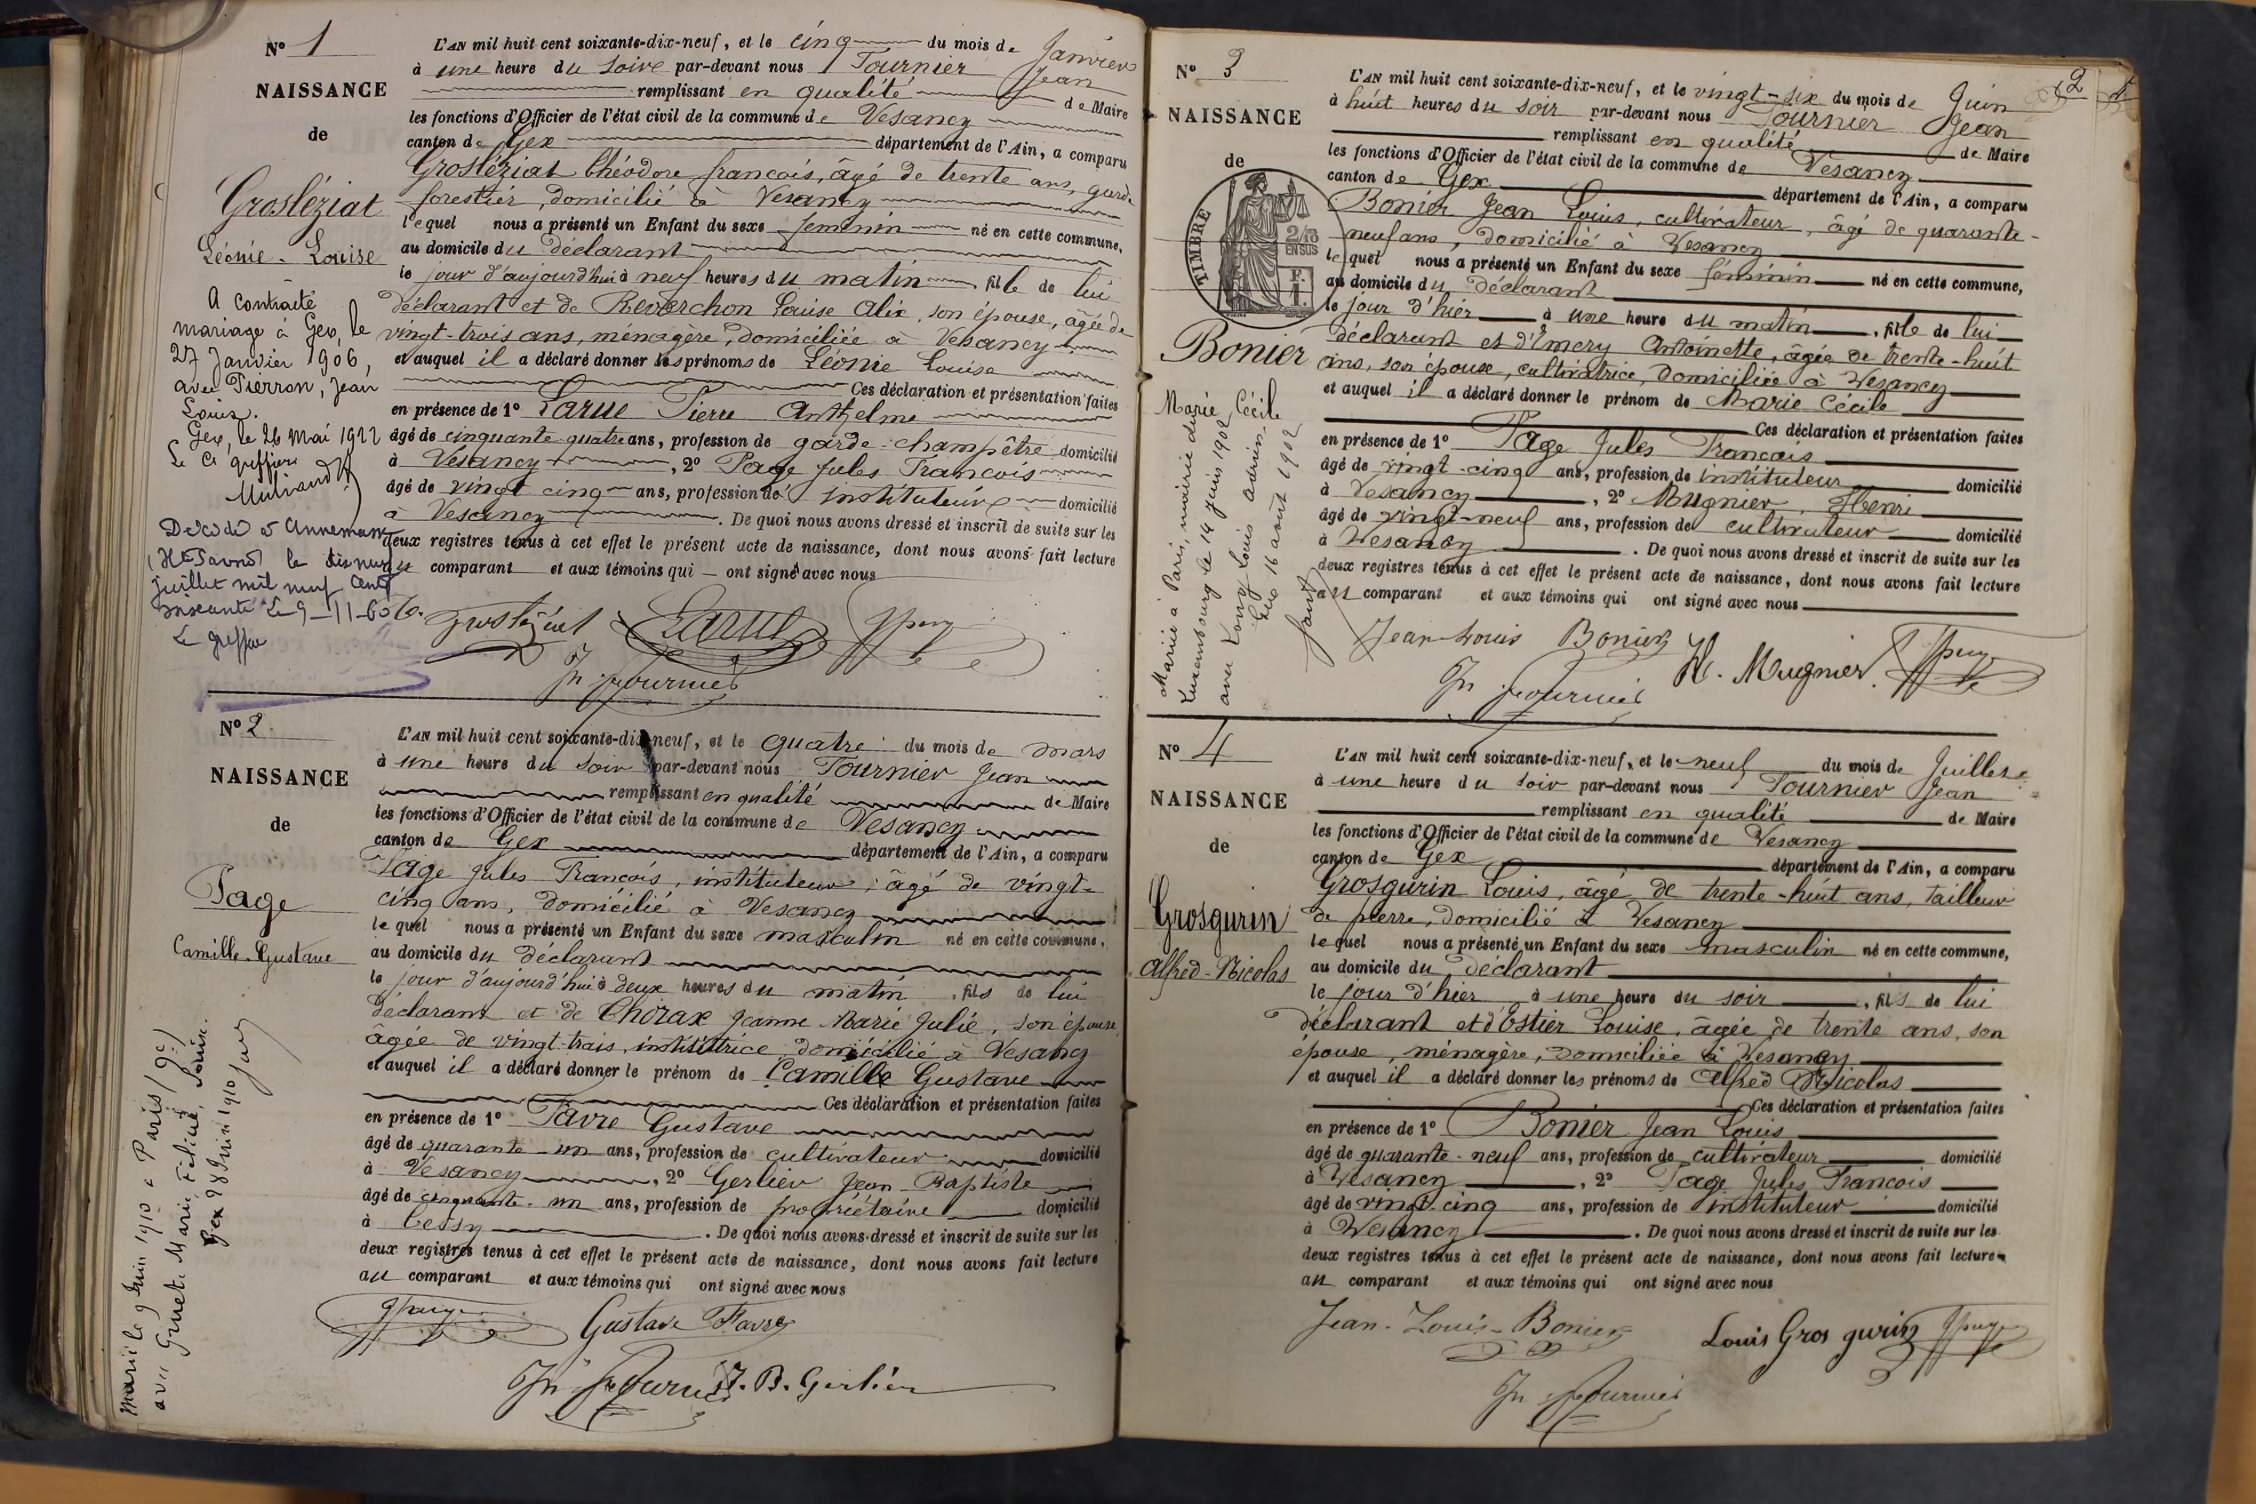 N° 1
NAISSANCE
de
Grosléziat
Léonie-Louise
A contracté
mariage à Gex, le
27 Janvier 1906,
avec Pierron, Jean
Louis.
Gex, le 26 Mai 1922
Le Cs greffier
Décédé à Annemasse
(Hte Savoie) le dix neuf
juillet mil neuf cent
soixante Le 9-11-60
Le greffier
L'AN mil huit cent soixante-dix-neuf, et le cinq du mois de Janvier
à une heure du soire par-devant nous Tournier Jean
remplissant en qualité de Maire
les fonctions d'Officier de l'état civil de la commune de Vesancy
canton de Gex département de l'Ain, a comparu
Grosléziat Chéodore françois, âgé de trente ans, garde
forestier, domicilié à Vesancy
lequel nous a présenté un Enfant du sexe féminin né en cette commune,
au domicile du déclarant
le jour d'aujourd'hui à neuf heures du matin fille de lui
déclarant et de Reverchon Louise Alix, son épouse, âgée de
vingt-trois ans, ménagère, domiciliée à Vesancy
et auquel il a déclaré donner les prénoms de Léonie Louise
Ces déclaration et présentation faites
en présence de 1° Larue Pierre Anthelme
âgé de cinquante quatre ans, profession de garde-champêtre domicilié
à Vesancy, 2° Page Jules François
âgé de vingt cinq ans, profession de instituteur domicilié
à Vesancy. De quoi nous avons dressé et inscrit de suite sur les
deux registres tenus à cet effet le présent acte de naissance, dont nous avons fait lecture
au comparant et aux témoins qui ont signé avec nous
Grosléziat Larue JPage
Jn Fournier
N° 2
NAISSANCE
de
Page
Camille-Gustave
Marié le 9 Juin 1910 à Paris (9e)
avec Gruet Marie Félicie,
Gex 28 Juin 1910
L'AN mil huit cent soixante-dix-neuf, et le quatre du mois de mars
à une heure du soir par-devant nous Tournier Jean
remplissant en qualité de Maire
les fonctions d'Officier de l'état civil de la commune de Vesancy
canton de Gex département de l'Ain, a comparu
Page Jules François, instituteur, âgé de vingt-
cinq ans, domicilié à Vesancy
lequel nous a présenté un Enfant du sexe masculin né en cette commune,
au domicile du déclarant
le jour d'aujourd'hui à deux heures du matin, fils de lui
déclarant et de Chorax Jeanne Marie Julie, son épouse
âgée de vingt-trois, institutrice domicilié à Vesancy
et auquel il a déclaré donner le prénom de Camille Gustave
Ces déclaration et présentation faites
en présence de 1° Favre Gustave
âgé de quarante-un ans, profession de cultivateur domicilié
à Vesancy, 2° Gerlier Jean-Baptiste
âgé de cinquante-un ans, profession de propriétaire domicilié
à Cessy. De quoi nous avons dressé et inscrit de suite sur les
deux registres tenus à cet effet le présent acte de naissance, dont nous avons fait lecture
au comparant et aux témoins qui ont signé avec nous
JPage Gustave Favre
Jn Fournier J. B. Gerlier
2
N° 3
NAISSANCE
de
TIMBRE
2/10
EN SUS
F.
1.
Bonier
Marie Cécile
Mariée à Paris, mairie du
Luxembourg le 14 juin 1902
avec Louis Adrien.
Gex 16 août 1902
L'AN mil huit cent soixante-dix-neuf, et le vingt-six du mois de Juin
à huit heures du soir par-devant nous Tournier Jean
remplissant en qualité de Maire
les fonctions d'Officier de l'état civil de la commune de Vesancy
canton de Gex département de l'Ain, a comparu
Bonier Jean Louis, cultivateur, âgé de quarante-
neuf ans, domicilié à Vesancy
lequel nous a présenté un Enfant du sexe féminin né en cette commune,
au domicile du déclarant
le jour d'hier à une heure du matin, fille de lui
déclarant et d'Emery Antoinette, âgée de trente-huit
ans, son épouse, cultivatrice, domiciliée à Vesancy
et auquel il a déclaré donner le prénom de Marie Cécile
Ces déclaration et présentation faites
en présence de 1° Page Jules François
âgé de vingt-cinq ans, profession de instituteur domicilié
à Vesancy, 2° Mugnier, Henri
âgé de vingt-neuf ans, profession de cultivateur domicilié
à Vesancy. De quoi nous avons dressé et inscrit de suite sur les
deux registres tenus à cet effet le présent acte de naissance, dont nous avons fait lecture
au comparant et aux témoins qui ont signé avec nous
Jean-Louis Bonier H. Mugnier JPage
Jn Fournier
N° 4
NAISSANCE
de
Grosgurin
Alfred-Nicolas
L'AN mil huit cent soixante-dix-neuf, et le neuf du mois de Juillet
à une heure du soir par-devant nous Tournier Jean
remplissant en qualité de Maire
les fonctions d'Officier de l'état civil de la commune de Vesancy
canton de Gex département de l'Ain, a comparu
Grosgurin Louis, âgé de trente-huit ans, tailleur
de pierre, domicilié à Vesancy
lequel nous a présenté un Enfant du sexe masculin né en cette commune,
au domicile du déclarant
le jour d'hier à une heure du soir, fils de lui
déclarant et d'Estier Louise, âgée de trente ans, son
épouse, ménagère, domiciliée à Vesancy
et auquel il a déclaré donner les prénoms de Alfred Nicolas
Ces déclaration et présentation faites
en présence de 1° Bonier Jean Louis
âgé de quarante-neuf ans, profession de cultivateur domicilié
à Vesancy, 2° Page Jules François
âgé de vingt-cinq ans, profession de instituteur domicilié
à Vesancy. De quoi nous avons dressé et inscrit de suite sur les
deux registres tenus à cet effet le présent acte de naissance, dont nous avons fait lecture
au comparant et aux témoins qui ont signé avec nous
Jean-Louis-Bonier Louis Gros gurin JPage
Jn Fournier